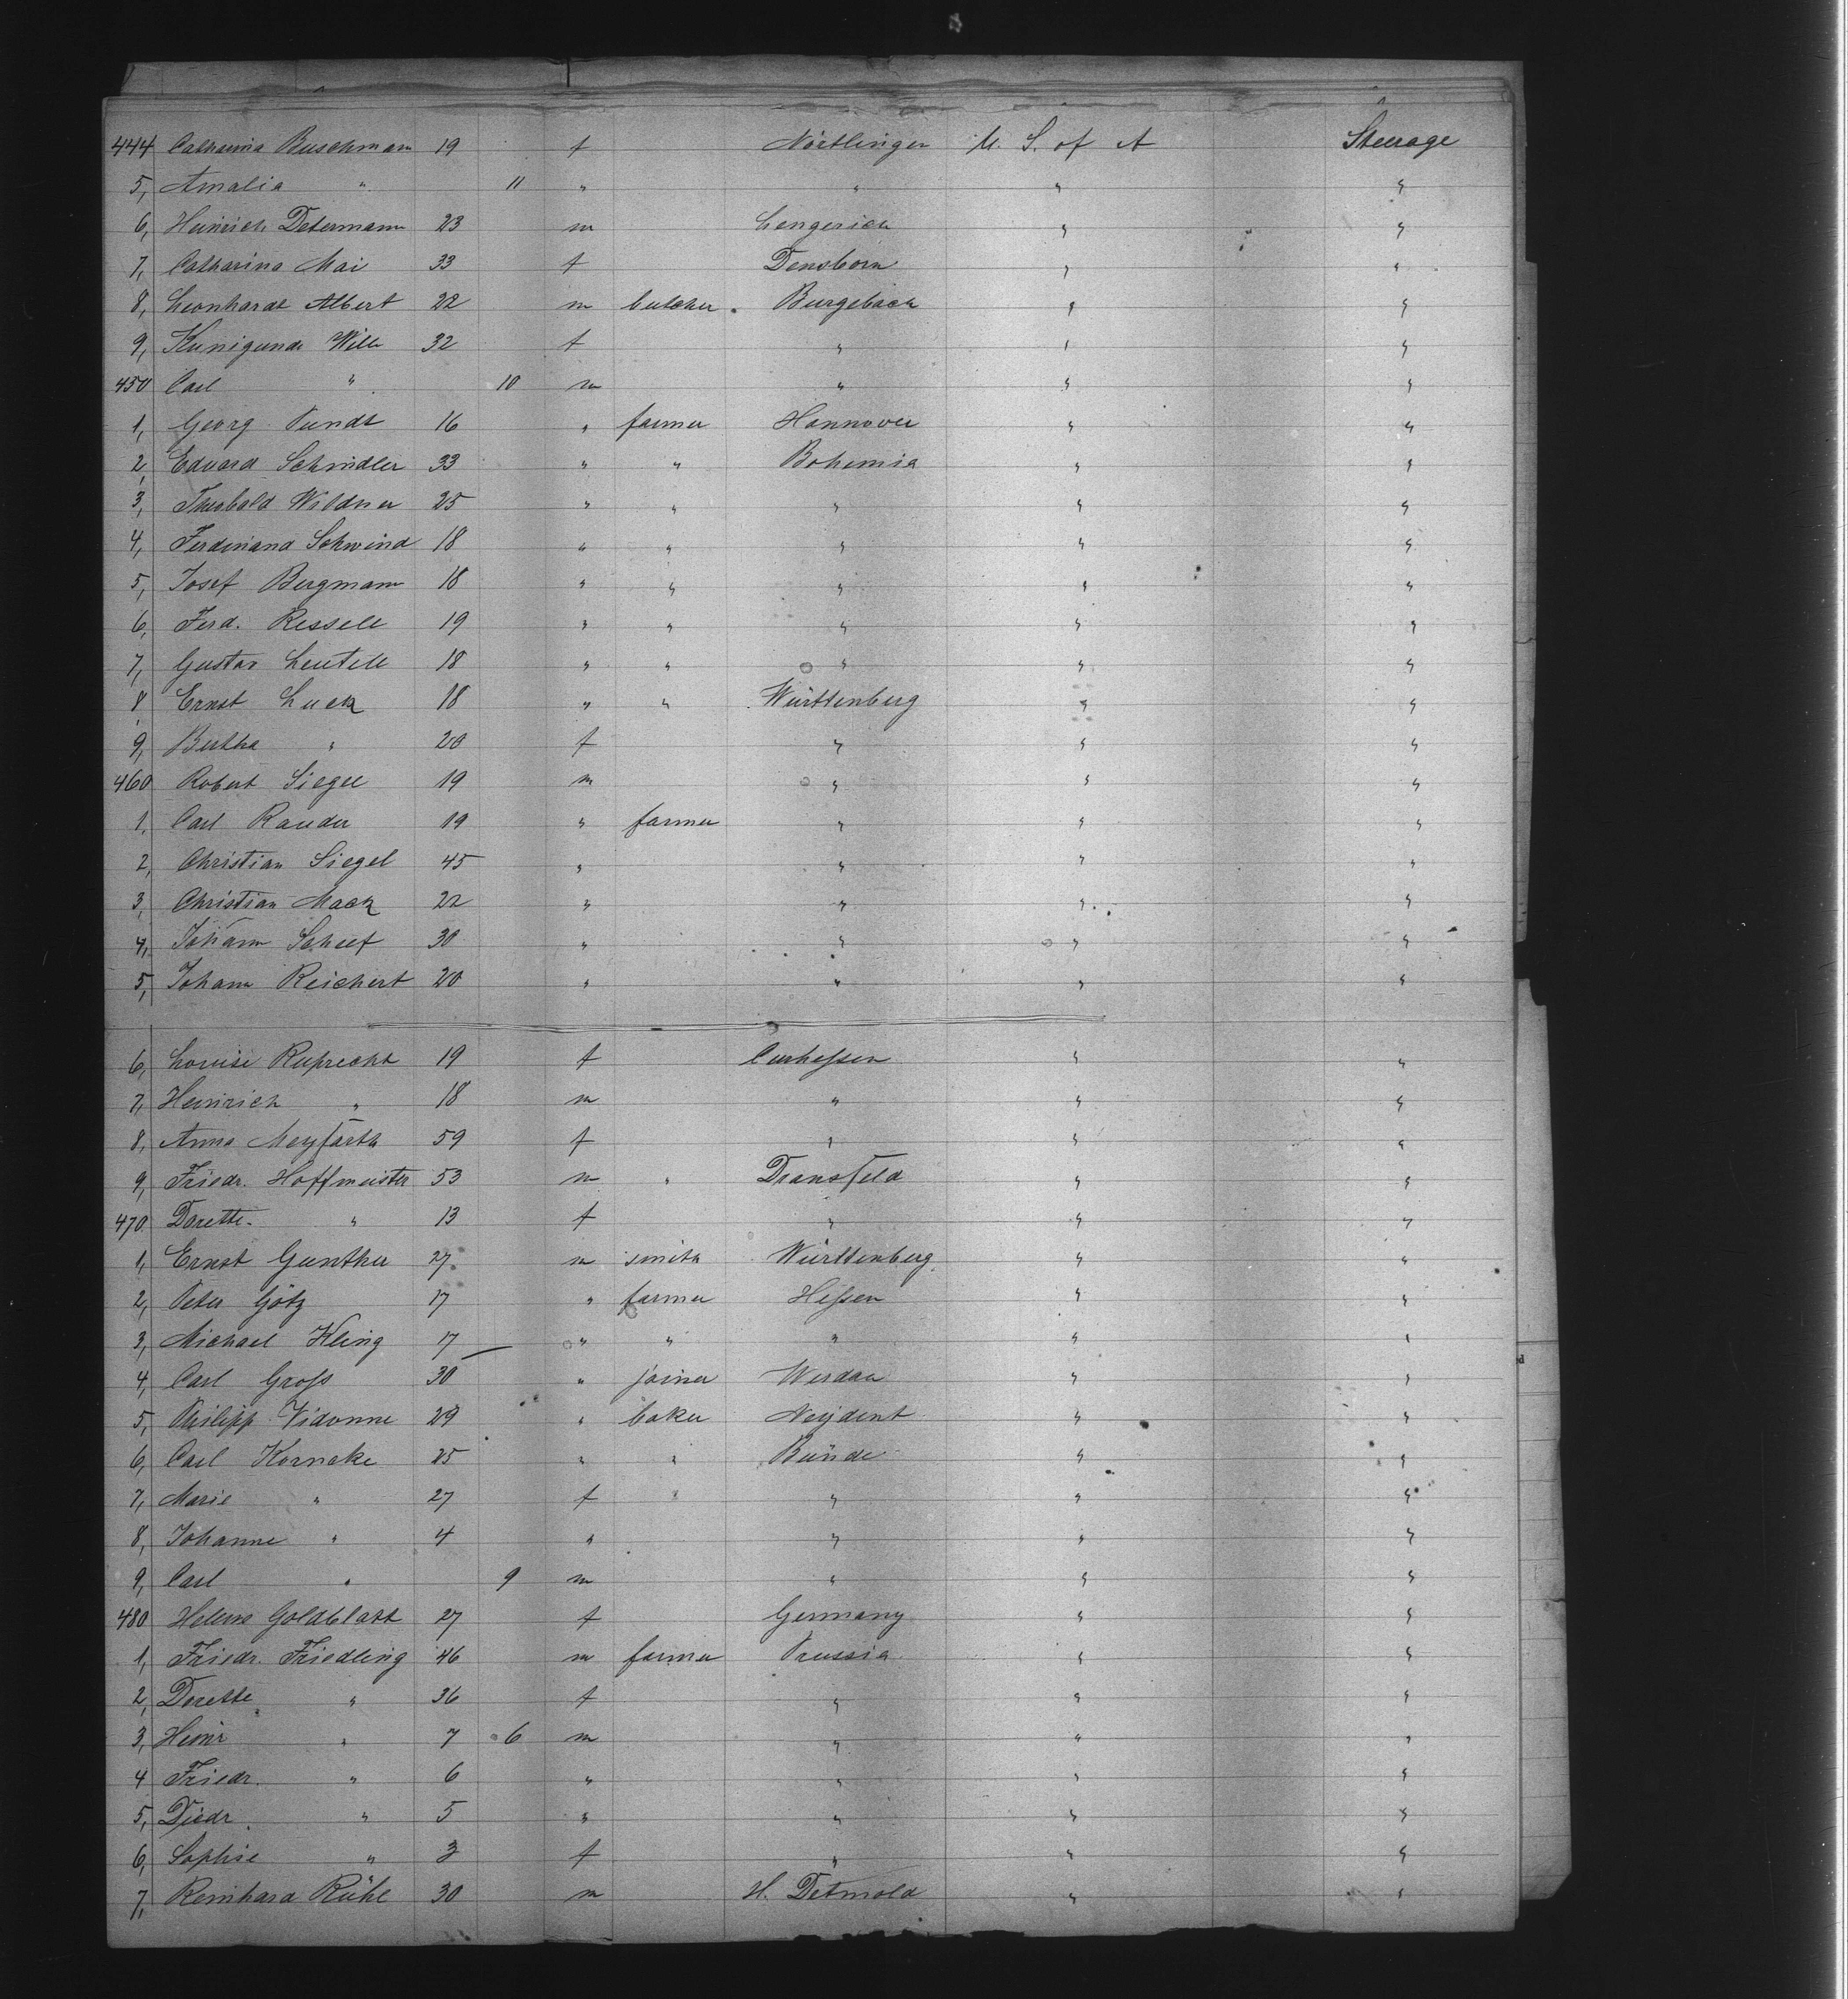 444 Catharina Buschmann 19 f Nörtlingen U. S. of A Steerage
5, Amalia " 11 " " " "
6, Heinrich Determann 23 m Lengerich " "
7, Catharina Mai 33 f Densborn " "
8, Leonhardt Albert 22 m butcher Burgebach " "
9, Kunigunde Will 32 f " " "
450 Carl " 10 m " " "
1, Georg Pundt 16 " farmer Hannover " "
2, Eduard Schindler 33 " " Bohemia " "
3, Theobald Wildner 25 " " " " "
4, Ferdinand Schwind 18 " " " " "
5, Josef Bergmann 18 " " " " "
6, Ferd. Ressell 19 " " " " "
7, Gustav Leutell 18 " " " " "
8, Ernst Luck 18 " " Württenberg " "
9, Bertha " 20 f " " "
460 Robert Siegel 19 m " " "
1, Carl Rauder 19 " farmer " " "
2, Christian Siegel 45 " " " "
3, Christian Mack 22 " " " "
4, Johann Scheef 30 " " " "
5, Johann Reichert 20 " " " "
6, Louise Ruprecht 19 f Curhessen " "
7, Heinrich " 18 m " " "
8, Anna Meyfarth 59 f " " "
9, Friedr. Hoffmeister 53 m " Dransfeld " "
470 Dorette " 13 f " " "
1, Ernst Gunther 27 m smith Württenberg " "
2, Peter Götz 17 " farmer Hessen " "
3, Michael Kling 17 " " " " "
4, Carl Gross 30 " joiner Werdau " "
5, Philipp Vidonne 29 " baker Neydent " "
6, Carl Korneke 25 " " Bünde " "
7, Marie " 27 f " " "
8, Johanne " 4 " " " "
9, Carl " 9 m " " "
480 Helene Goldblatt 27 f Germany " "
1, Friedr. Friedling 46 m farmer Prussia " "
2, Dorette " 36 f " " "
3, Heinr " 7 6 m " " "
4 Friedr. " 6 " " " "
5, Diedr. " 5 " " " "
6, Sophie " 3 f " " "
7, Reinhard Rühl 30 m H. Detmold " "